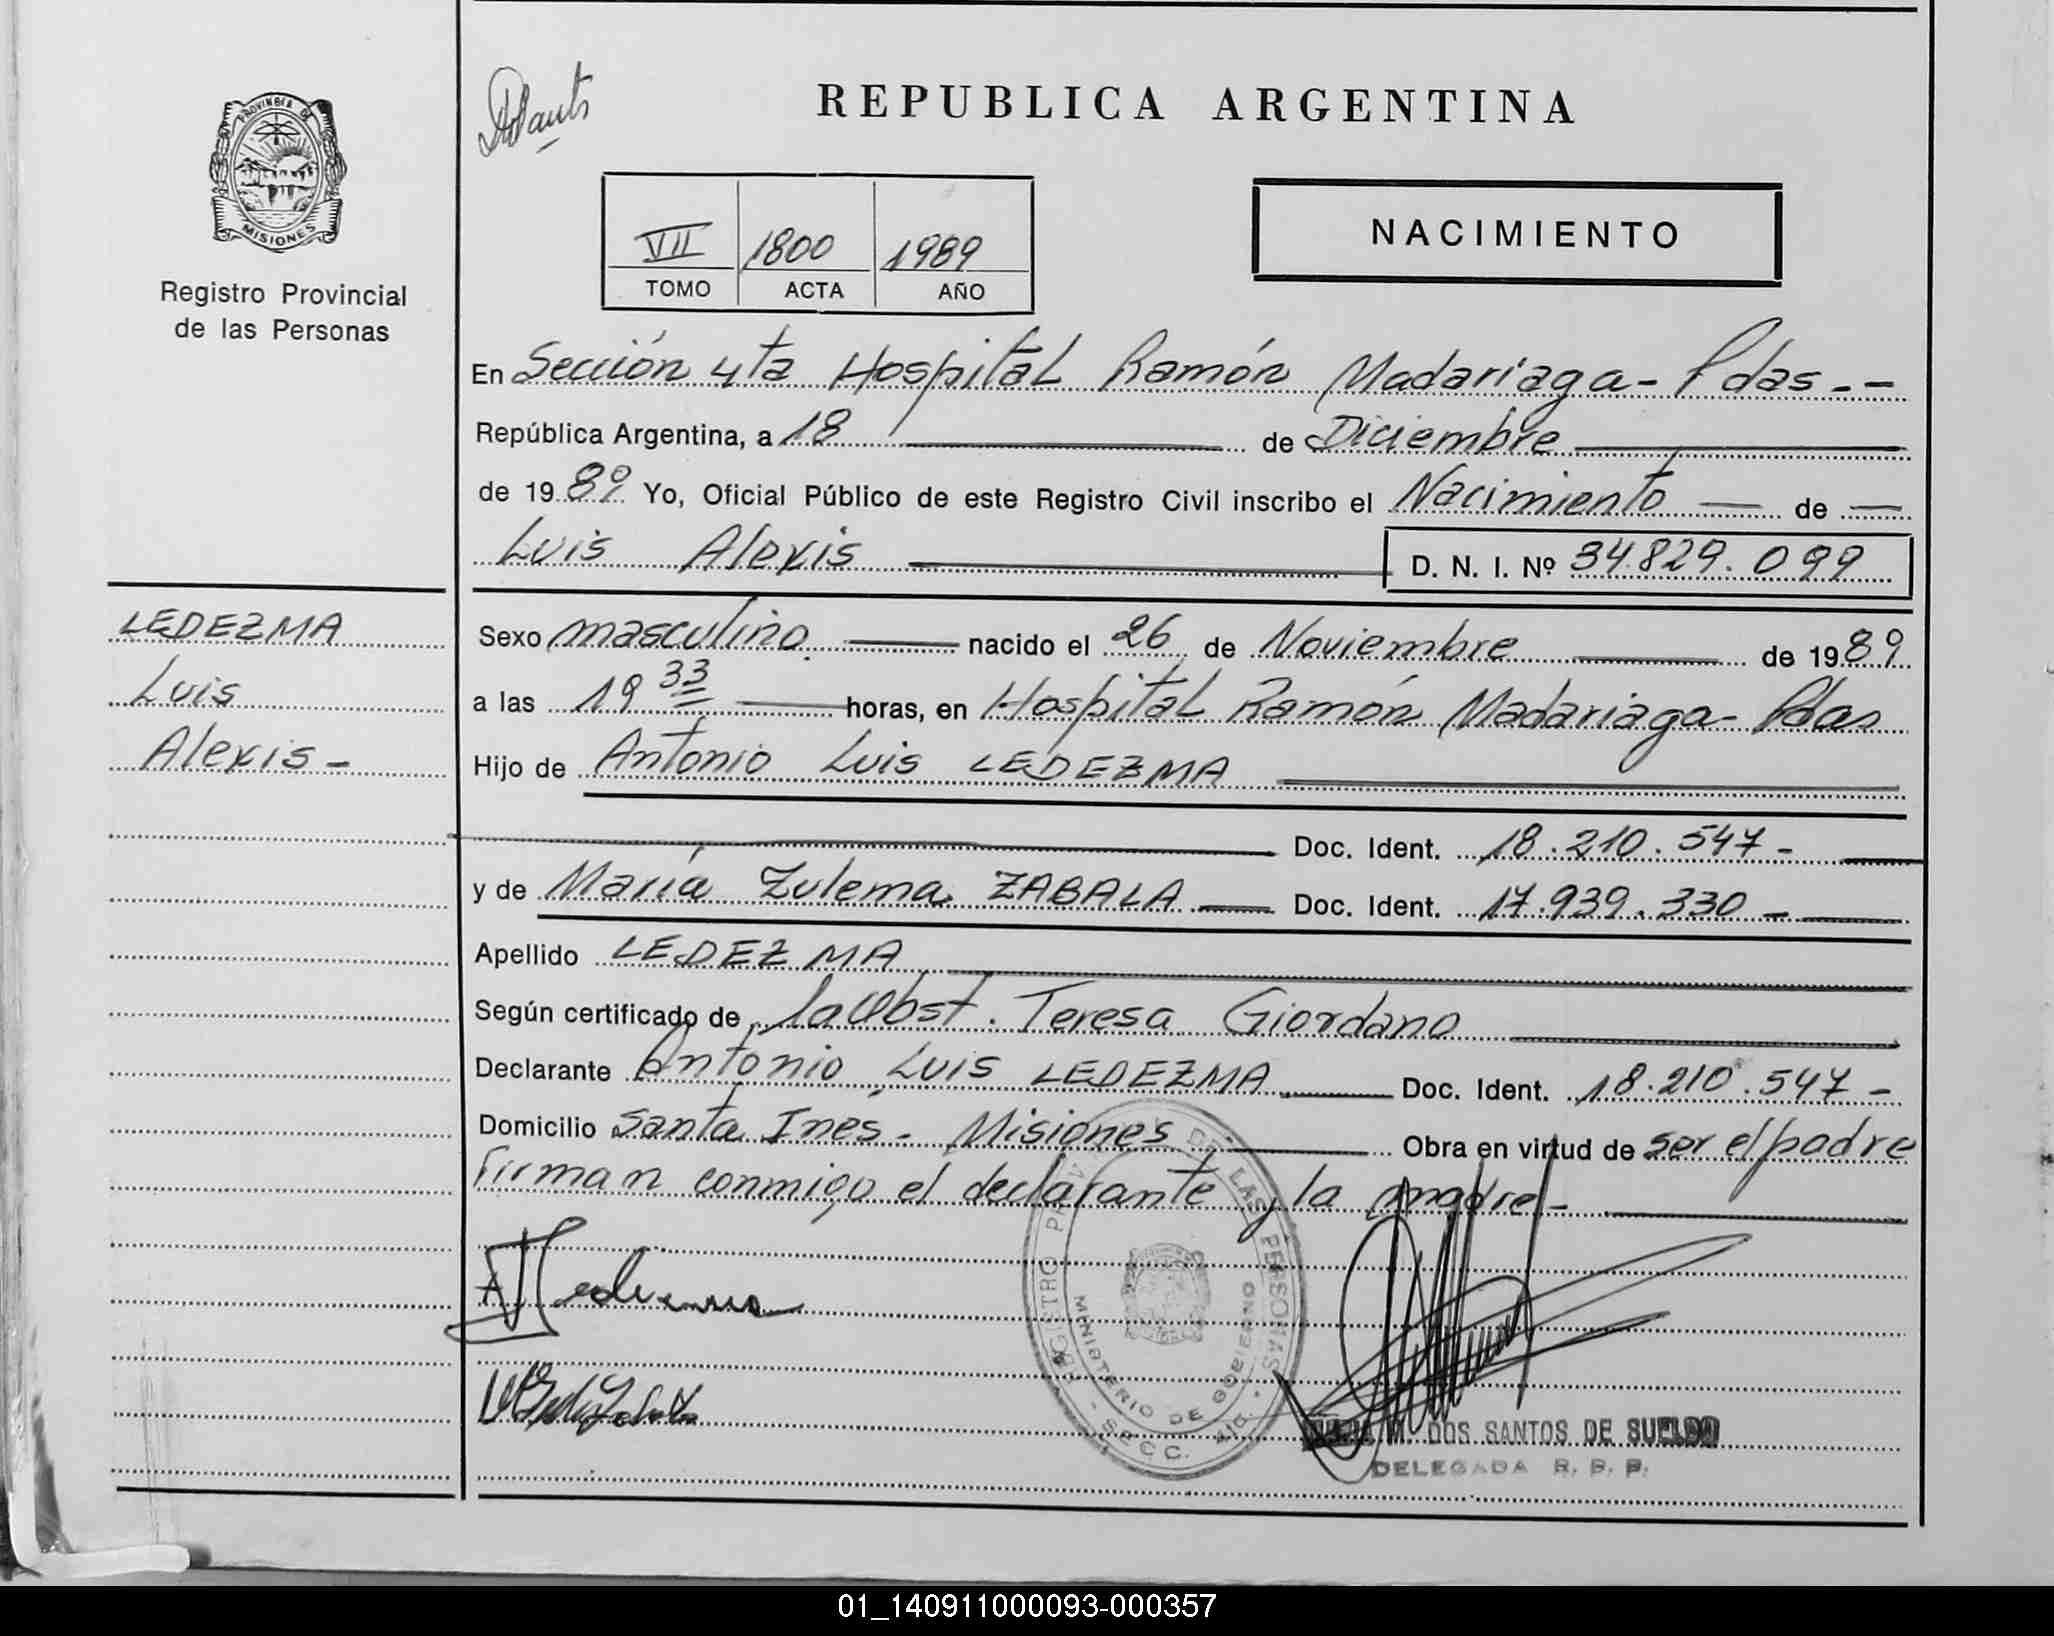 PROVINCIA DE
MISIONES
Registro Provincial
de las Personas
REPUBLICA ARGENTINA
NACIMIENTO
VII 1800 1989
TOMO ACTA AÑO
En Sección 4ta Hospital Ramón Madariaga - Pdas. -
República Argentina, a 18 de Diciembre
de 1989 Yo, Oficial Público de este Registro Civil inscribo el Nacimiento — de —
Luis Alexis D. N. I. Nº 34.829.099
LEDEZMA
Luis
Alexis -
Sexo masculino nacido el 26 de Noviembre de 1989
a las 19 33 horas, en Hospital Ramón Madariaga - Pdas
Hijo de Antonio Luis LEDEZMA
Doc. Ident. 18.210.547 -
y de María Zulema ZABALA Doc. Ident. 17.939.330 -
Apellido LEDEZMA
Según certificado de la Obst. Teresa Giordano
Declarante Antonio Luis LEDEZMA Doc. Ident. 18.210.547 -
Domicilio Santa Inés - Misiones Obra en virtud de ser el padre
Firman conmigo el declarante y la madre -
REGISTRO PROV. DE LAS PERSONAS
MINISTERIO DE GOBIERNO
- SECC. 4ta. -
M. DOS SANTOS DE SUELDO
DELEGADA R. P. P.
01_140911000093-000357